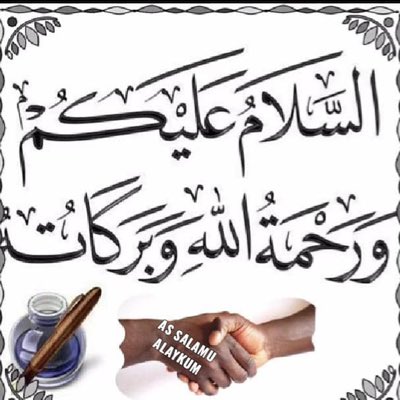 السَّلَامُ عَلَيْكُمْ
وَرَحْمَةُ اللهِ وَبَرَكَاتُهُ
AS SALAMU
ALAYKUM